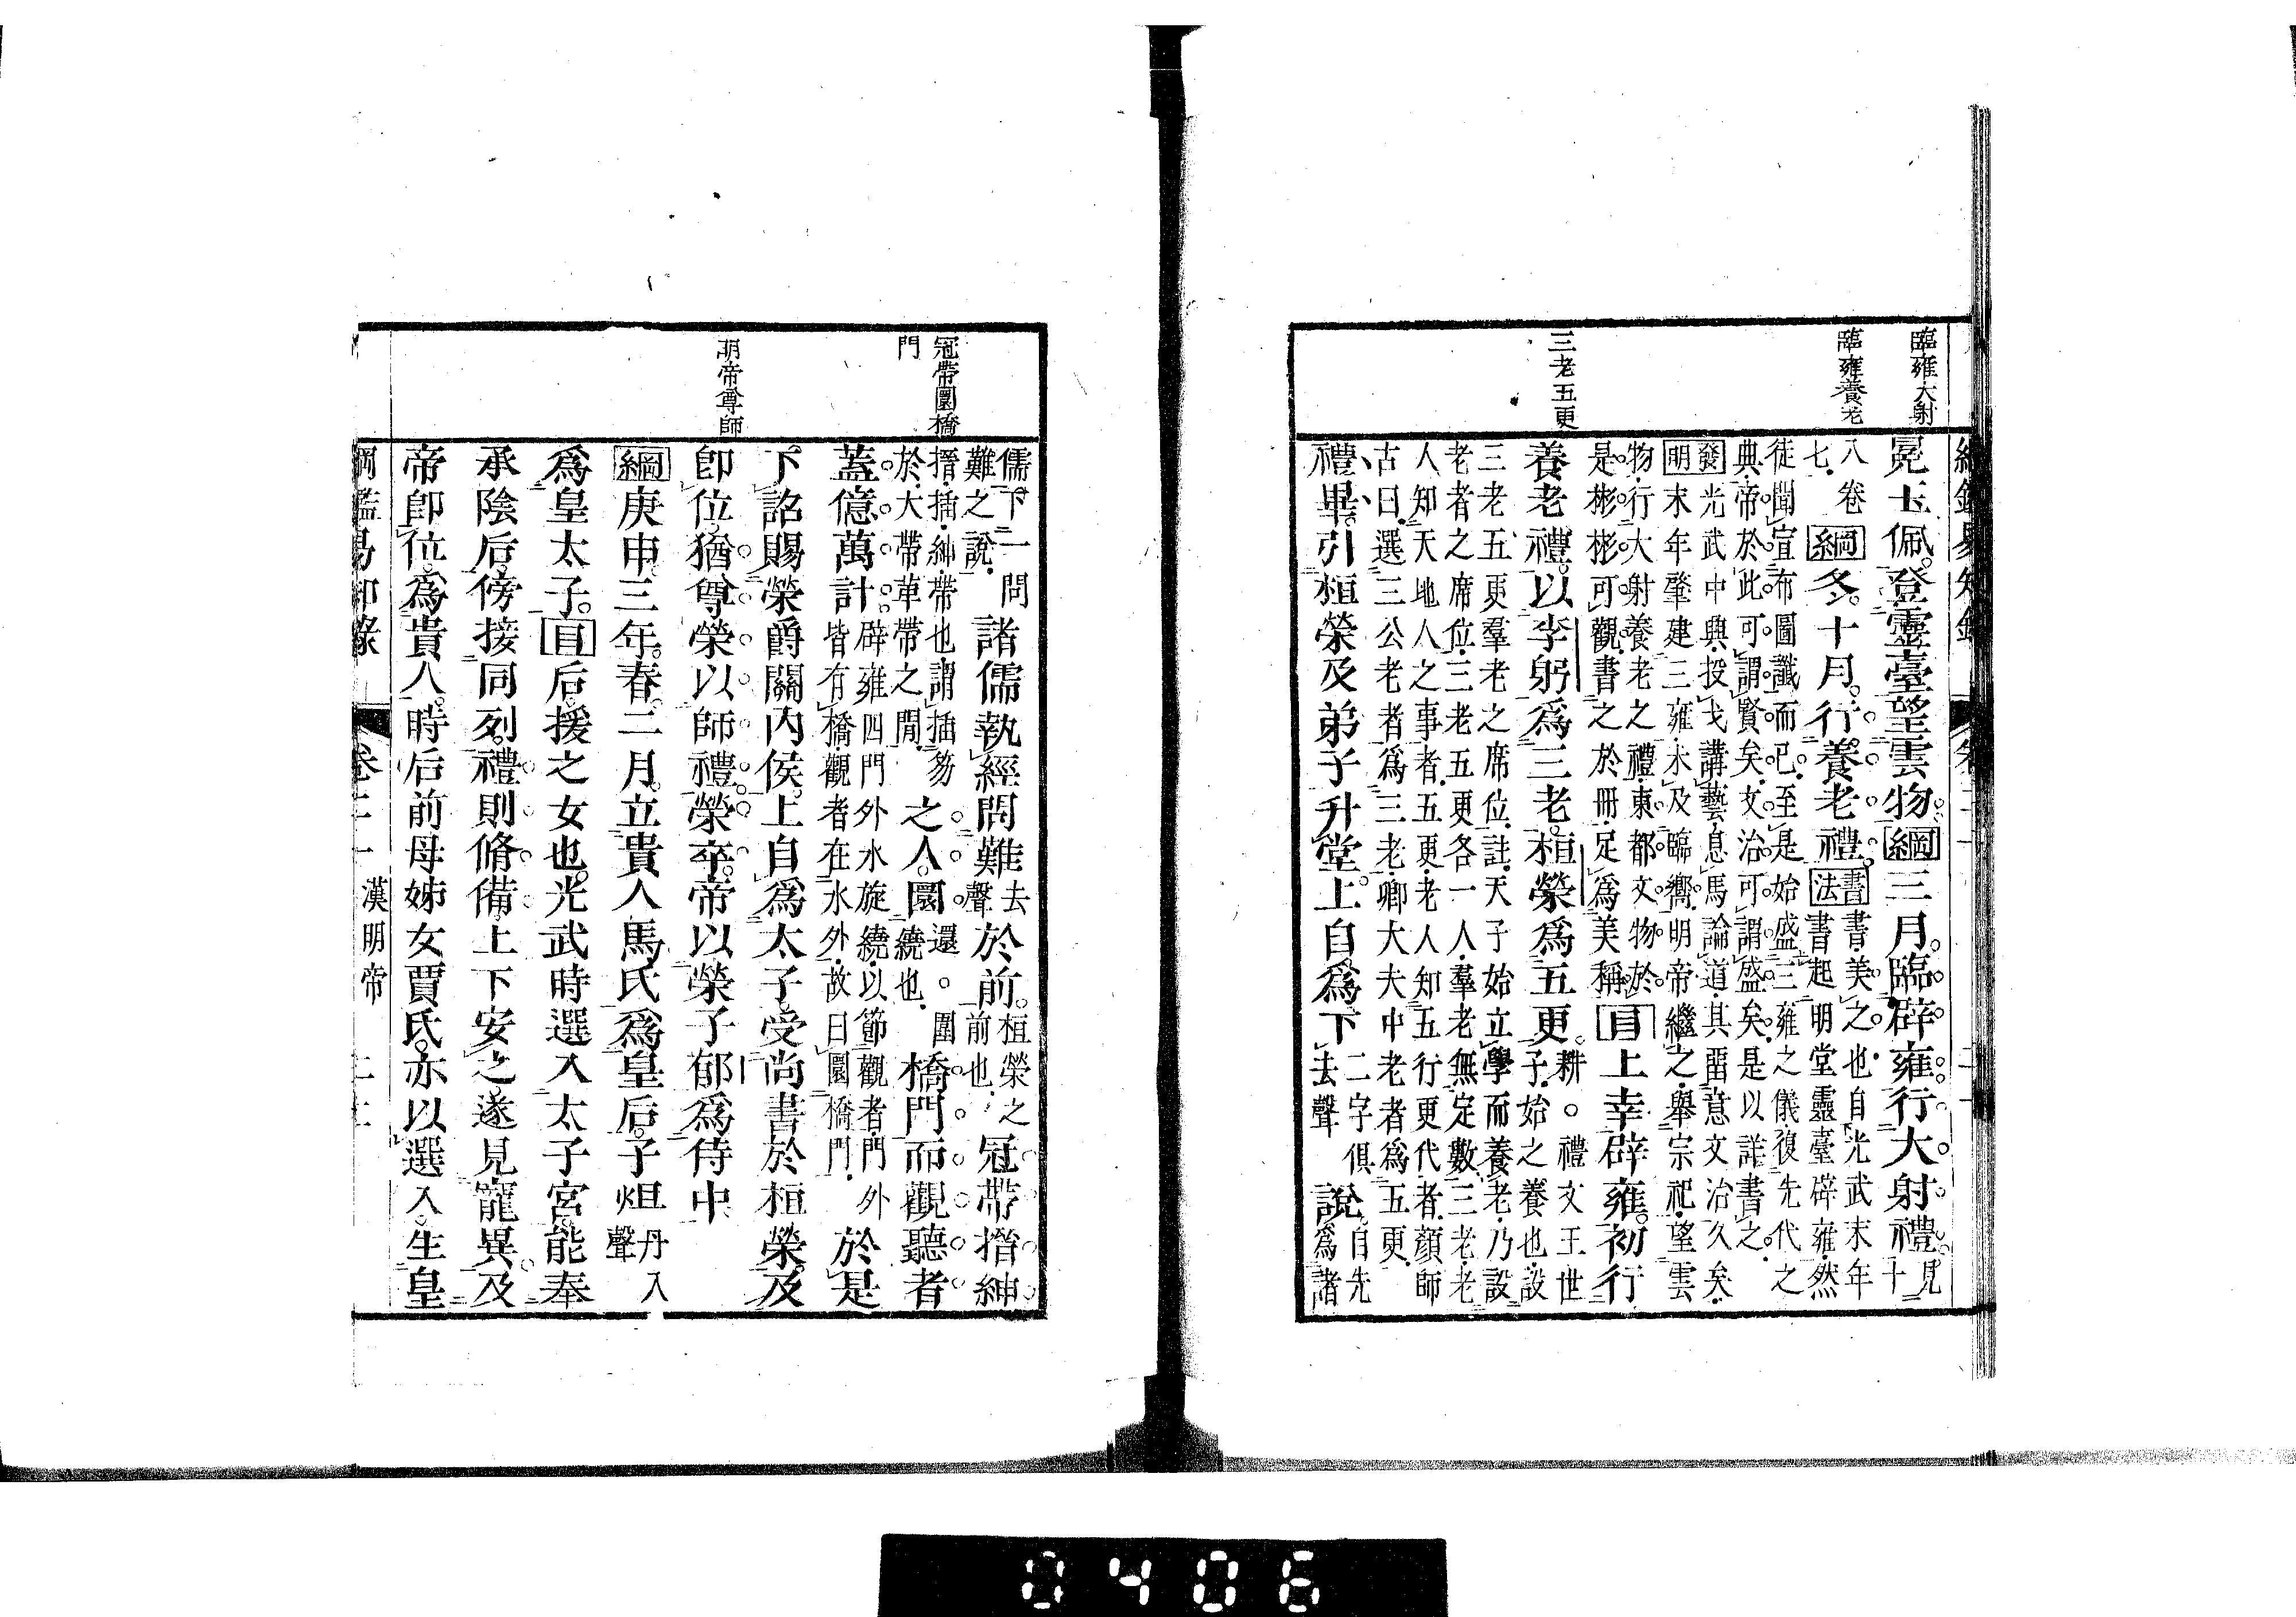 臨雍大射
臨雍養老
三老五更
冕玉佩。登靈臺望雲物。綱三月。臨辟雍行大射禮。見十
八卷七。綱冬。十月。行養老禮。書法書美之也。自光武末年書起明堂靈臺辟雍。然
徒聞宣布圖讖而已。至是始盛三雍之儀。復先代之
典。帝於此可謂賢矣。文治可謂盛矣。是以詳書之。
發明光武中興。投戈講藝。息馬論道。其畱意文治久矣。
末年肇建三雍。未及臨饗。明帝繼之。舉宗祀。望雲
物。行大射養老之禮。東都文物。於
是彬彬可觀。書之於冊。足爲美稱。目上幸辟雍。初行
養老禮。以李躬爲三老。桓榮爲五更。耕。禮文王世子。始之養也。設
三老五更羣老之席位。註。天子始立學而養老。乃設
老者之席位。三老五更各一人。羣老無定數。三老。老
人知天地人之事者。五更。老人知五行更代者。顏師
古曰。選三公老者爲三老。卿大夫中老者爲五更。
禮畢。引桓榮及弟子升堂。上自爲下二字俱去聲說。自先爲諸
冠帶圜橋門
明帝尊師
儒下一問難之說。諸儒執經問難去聲於前。桓榮之前也。冠帶搢紳
搢。插。紳。帶也。謂插笏於大帶革帶之閒。之人。圜還。圍繞也。橋門而觀聽者
蓋億萬計。辟雍四門外水旋繞。以節觀者。門外皆有橋。觀者在水外。故曰圜橋門。於是
下詔賜榮爵關內侯。上自爲太子。受尚書於桓榮。及
卽位。猶尊榮以師禮。榮卒。帝以榮子郁爲侍中。
綱庚申。三年。春。二月。立貴人馬氏爲皇后。子炟丹入聲
爲皇太子。目后。援之女也。光武時選入太子宮。能奉
承陰后。傍接同列。禮則脩備。上下安之。遂見寵異。及
帝卽位。爲貴人。時后前母姊女賈氏。亦以選入。生皇
綱鑑易知錄 卷二十 漢明帝
0406